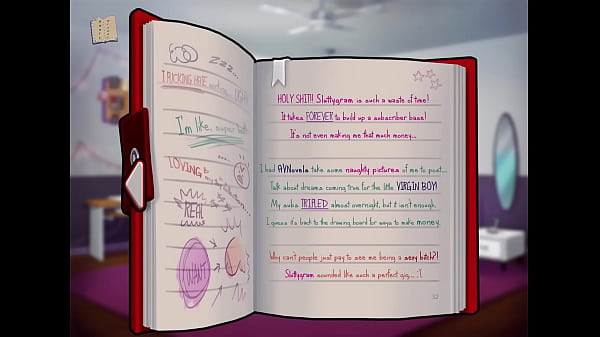 zzz...
I'm like, super
LOVING
REAL
WANT
HOLY SHIT!! Sluttygram is such a waste of time!
It takes FOREVER to build up a subscriber base!
It's not even making me that much money...
I had AVNovela take some naughty pictures of me to post...
Talk about dreams coming true for the little VIRGIN BOY!
My subs TRIPLED almost overnight, but it isn't enough.
I guess it's back to the drawing board for ways to make money.
Why can't people just pay to see me being a sexy bitch?!
Sluttygram sounded like such a perfect gig... :'(
32